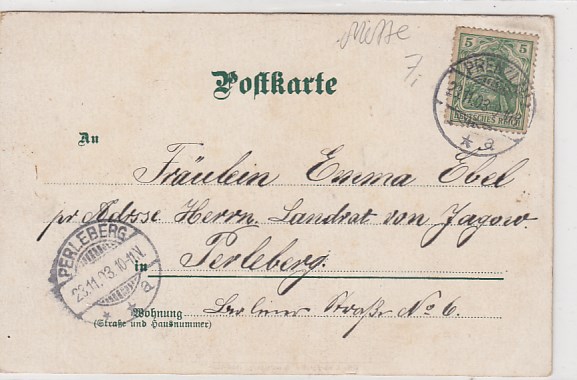 Messe
7,
5 5
DEUTSCHES REICH
PRENZL
23.11.03.
* a
Postkarte
An
Fräulein Emma Ebel
pr Adresse Herrn Landrat von Jagow.
in Perleberg.
Wohnung Berliner Straße No 6.
(Straße und Hausnummer)
PERLEBERG
23.11.03.10-11.V.
* * a